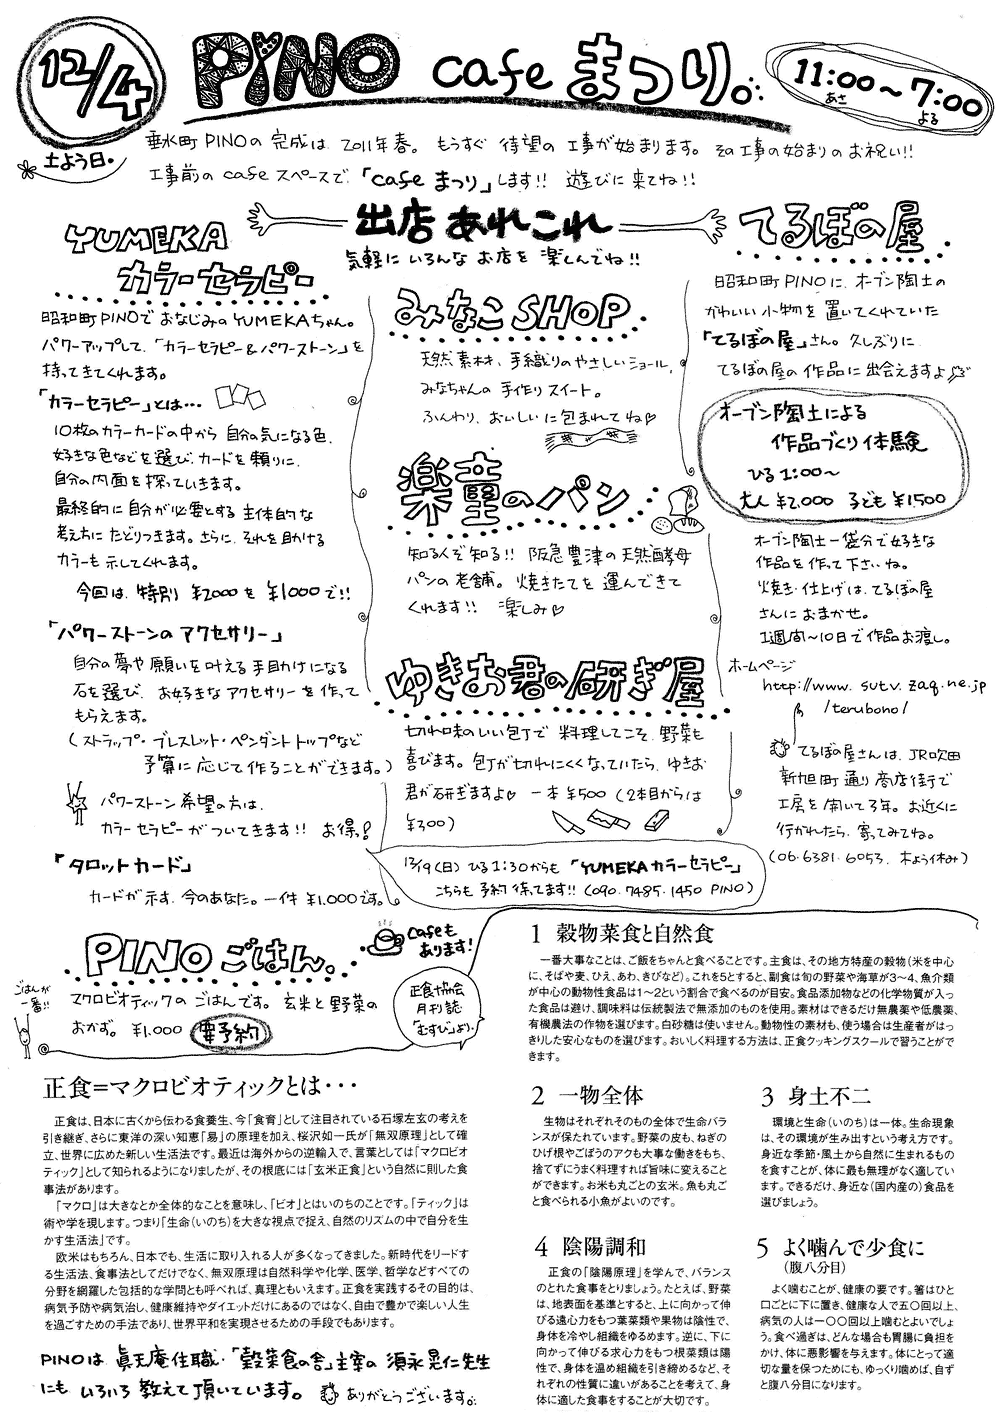 12/4
土よう日.
PiNO cafe まつり。
11:00～7:00
あさ
よる
垂水町PINOの完成は 2011年春。もうすぐ 待望の 工事が始まります。その工事の始まりのお祝い!!
工事前の cafe スペースで「cafe まつり」します!! 遊びに来てね!!
出店 あれこれ
気軽に いろんな お店を 楽しんでね!!
YUMEKA
カラーセラピー
昭和町PINOで おなじみの YUMEKAちゃん。
パワーアップして、「カラーセラピー&パワーストーン」を
持ってきてくれます。
「カラーセラピー」とは…
10枚のカラーカードの中から 自分の気になる色、
好きな色などを選び、カードを頼りに、
自分の内面を探っていきます。
最終的に 自分が必要とする 主体的な
考え方に たどりつきます。さらに、それを助ける
カラーも示してくれます。
今回は、特別 ¥2000を ¥1000で!!
「パワーストーンの アクセサリー」
自分の夢や願いを叶える手助けになる
石を選び、お好きなアクセサリーを作って
もらえます。
(ストラップ・ブレスレット・ペンダントトップなど
予算に応じて作ることができます。)
パワーストーン希望の方は、
カラーセラピーがついてきます!! お得!
「タロットカード」
カードが示す、今のあなた。一件 ¥1.000です。
みなこ SHOP
天然素材、手織りのやさしいショール、
みなちゃんの 手作りスイート。
ふんわり、おいしいに包まれてね♡
楽童のパン
知る人ぞ知る!! 阪急豊津の天然酵母
パンの老舗。焼きたてを運んできて
くれます!! 楽しみ♡
ゆきお君の研ぎ屋
切れ味のいい包丁で 料理してこそ、野菜も
喜びます。包丁が切れにくくなっていたら、ゆきお
君が研ぎますよ♡ 一本¥500 (2本目からは
¥300)
12/19(日) ひる1:30からも「YUMEKAカラーセラピー」
こちらも 予約 待ってます!! (090.7485.1450 PINO)
てるぼの屋
昭和町PINOに、オーブン陶土の
かわいい小物を置いてくれていた
「てるぼの屋」さん。久しぶりに
てるぼの屋の作品に出会えますよ
オーブン陶土による
作品づくり体験
ひる 1:00～
大人 ¥2.000 子ども ¥1500
オーブン陶土一袋分で好きな
作品を作って下さいね。
焼き・仕上げは、てるぼの屋
さんにおまかせ。
1週間～10日で作品お渡し。
ホームページ
http://www.sutv.zaq.ne.jp
/terubono/
てるぼの屋さんは、JR吹田
新旭町通り商店街で
工房を開いて3年。お近くに
行かれたら、寄ってみてね。
(06.6381.6053. 木よう休み)
PINOごはん。
cafeも
あります!
ごはんが
一番!!
マクロビオティックのごはんです。玄米と野菜の
おかず。¥1.000 要予約
正食協会
月刊誌
「むすび」より.
正食=マクロビオティックとは・・・
正食は、日本に古くから伝わる食養生、今「食育」として注目されている石塚左玄の考えを
引き継ぎ、さらに東洋の深い知恵「易」の原理を加え、桜沢如一氏が「無双原理」として確
立、世界に広めた新しい生活法です。最近は海外からの逆輸入で、言葉としては「マクロビオ
ティック」として知られるようになりましたが、その根底には「玄米正食」という自然に則した食
事法があります。
「マクロ」は大きなとか全体的なことを意味し、「ビオ」とはいのちのことです。「ティック」は
術や学を現します。つまり「生命(いのち)を大きな視点で捉え、自然のリズムの中で自分を生
かす生活法」です。
欧米はもちろん、日本でも、生活に取り入れる人が多くなってきました。新時代をリードす
る生活法、食事法としてだけでなく、無双原理は自然科学や化学、医学、哲学などすべての
分野を網羅した包括的な学問とも呼べれば、真理ともいえます。正食を実践するその目的は、
病気予防や病気治し、健康維持やダイエットだけにあるのではなく、自由で豊かで楽しい人生
を過ごすための手法であり、世界平和を実現させるための手段でもあります。
PINOは、眞天庵住職・「穀菜食の舎」主宰の 須永晃仁先生
にも いろいろ 教えて頂いています。 ありがとうございます。
1 穀物菜食と自然食
一番大事なことは、ご飯をちゃんと食べることです。主食は、その地方特産の穀物(米を中心
に、そばや麦、ひえ、あわ、きびなど)。これを5とすると、副食は旬の野菜や海草が3～4、魚介類
が中心の動物性食品は1～2という割合で食べるのが目安。食品添加物などの化学物質が入っ
た食品は避け、調味料は伝統製法で無添加のものを使用。素材はできるだけ無農薬や低農薬、
有機農法の作物を選びます。白砂糖は使いません。動物性の素材も、使う場合は生産者がはっ
きりした安心なものを選びます。おいしく料理する方法は、正食クッキングスクールで習うことがで
きます。
2 一物全体
生物はそれぞれそのもの全体で生命バラ
ンスが保たれています。野菜の皮も、ねぎの
ひげ根やごぼうのアクも大事な働きをもち、
捨てずにうまく料理すれば旨味に変えること
ができます。お米も丸ごとの玄米。魚も丸ご
と食べられる小魚がよいのです。
3 身土不二
環境と生命(いのち)は一体。生命現象
は、その環境が生み出すという考え方です。
身近な季節・風土から自然に生まれるもの
を食すことが、体に最も無理がなく適してい
ます。できるだけ、身近な(国内産の)食品を
選びましょう。
4 陰陽調和
正食の「陰陽原理」を学んで、バランス
のとれた食事をとりましょう。たとえば、野菜
は、地表面を基準とすると、上に向かって伸
びる遠心力をもつ葉菜類や果物は陰性で、
身体を冷やし組織をゆるめます。逆に、下に
向かって伸びる求心力をもつ根菜類は陽
性で、身体を温め組織を引き締めるなど、そ
れぞれの性質に違いがあることを考えて、身
体に適した食事をすることが大切です。
5 よく噛んで少食に
(腹八分目)
よく噛むことが、健康の要です。箸はひと
口ごとに下に置き、健康な人で五〇回以上、
病気の人は一〇〇回以上噛むとよいでしょ
う。食べ過ぎは、どんな場合も胃腸に負担を
かけ、体に悪影響を与えます。体にとって適
切な量を保つためにも、ゆっくり噛めば、自ず
と腹八分目になります。